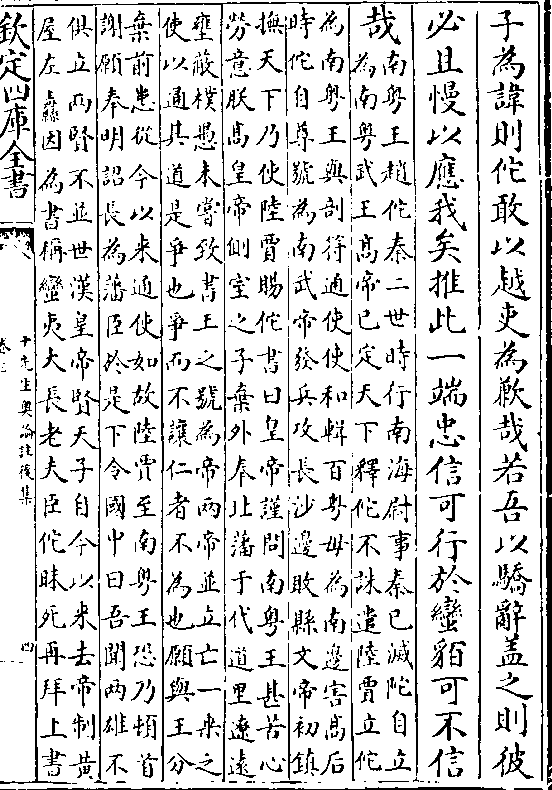 子為諱則佗敢以越吏為歉哉若吾以驕辭蓋之則彼
必且慢以應我矣推此一端忠信可行於蠻貊可不信
哉
南粤王趙佗秦二世時行南海尉事秦已滅陀自立
為南粤武王髙帝已定天下釋佗不誅遣陸賈立佗
為南粤王與剖符通使使和輯百粤毋為南邊害髙后
時佗自尊號為南武帝發兵攻長沙邊敗縣文帝初鎮
撫天下乃使陸賈賜佗書曰皇帝謹問南粤王甚苦心
勞意朕髙皇帝側室之子棄外奉北藩于代道里遼逺
壅蔽樸愚未嘗致書王之號為帝兩帝並立亡一乘之
使以通其道是爭也爭而不讓仁者不為也願與王分
棄前患從今以来通使如故陸賈至南粤王恐乃頓首
謝願奉明詔長為藩臣於是下令國中曰吾聞兩雄不
俱立兩賢不並世漢皇帝賢天子自今以来去帝制黄
屋左纛因為書稱蠻夷大長老夫臣佗昧死再拜上書
欽定四庫全書
十先生奥論註後集
卷
四